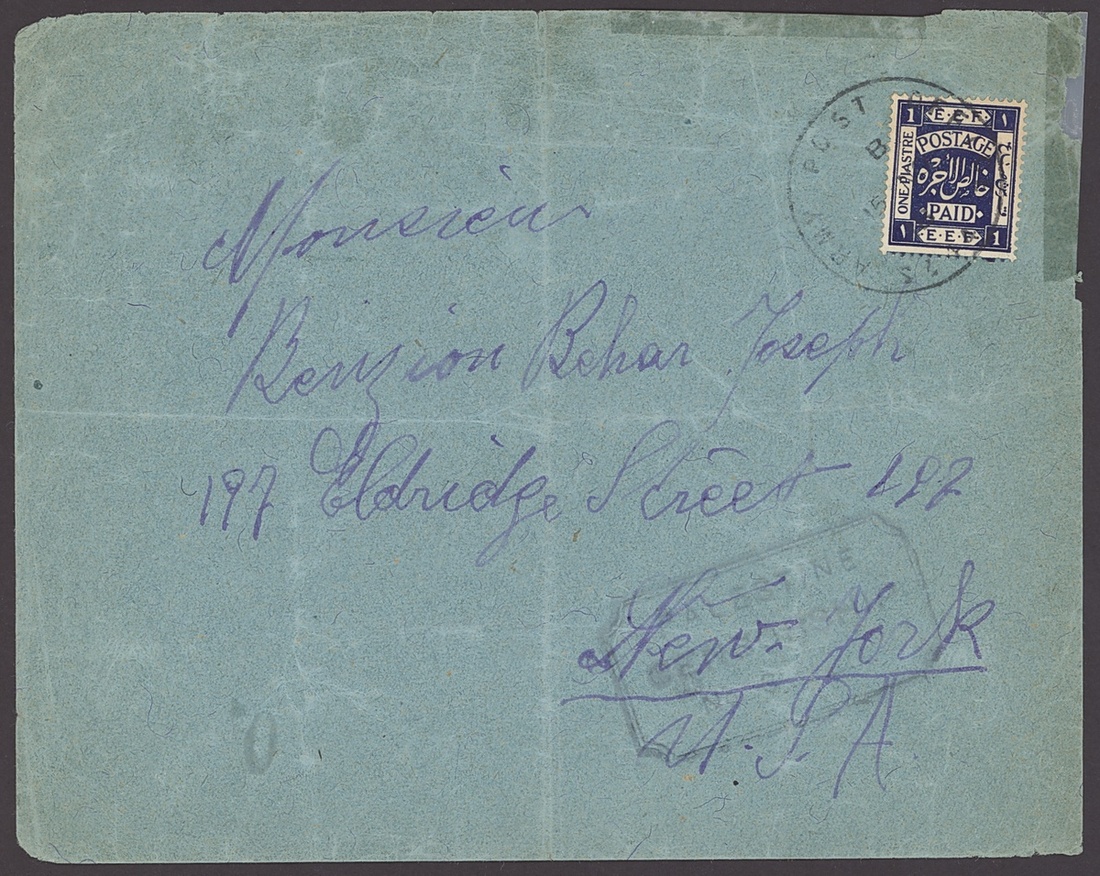 ARMY POST
E.E.F.
1 ١
POSTAGE
ONE PIASTRE
خالص الأجره
PAID
١ E.E.F. 1
Monsieur
Benzion Behar Joseph
197 Eldridge Street 197
New-York
U.S.A